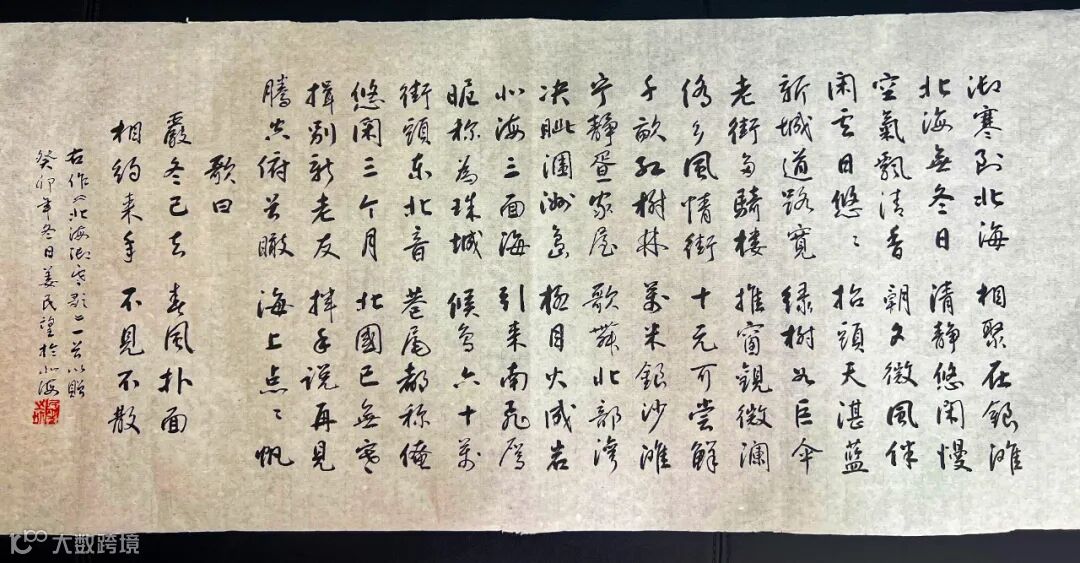 御寒到北海 相聚在銀滩
北海無冬日 清静悠闲慢
空氣飄清香 朝夕微風伴
闲云日悠々 抬頭天湛蓝
新城道路寬 绿樹如巨伞
老街多騎樓 推窗觀微澜
侨乡風情街 十元可尝鲜
千畝红樹林 萬米銀沙滩
宁静疍家屋 歌舞北部湾
决眦涠洲岛 極目火成岩
北海三面海 引来南飛雁
昵称為珠城 候鸟六十万
街頭东北音 巷尾都称俺
悠闲三个月 北國已無寒
揖别新老友 挥手说再見
腾空俯首瞰 海上点々帆
歌曰
嚴冬已去 春風扑面
相约来年 不見不散
右作《北海御寒》一首以贈
癸卯年冬日姜民望於北海
大数跨境